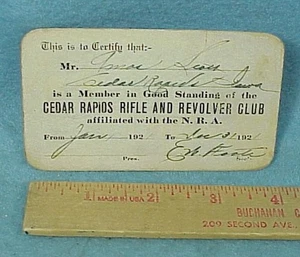 This is to Certify that:-
Mr.
Cedar Rapids Iowa
is a Member in Good Standing of the
CEDAR RAPIOS RIFLE AND REVOLVER CLUB
affiliated with the N. R. A.
From Jan 1 192 To Dec 31 192
Pres.
1 2 3 4
MADE IN U.S.A. BUCHANAN
209 SECOND AVE.